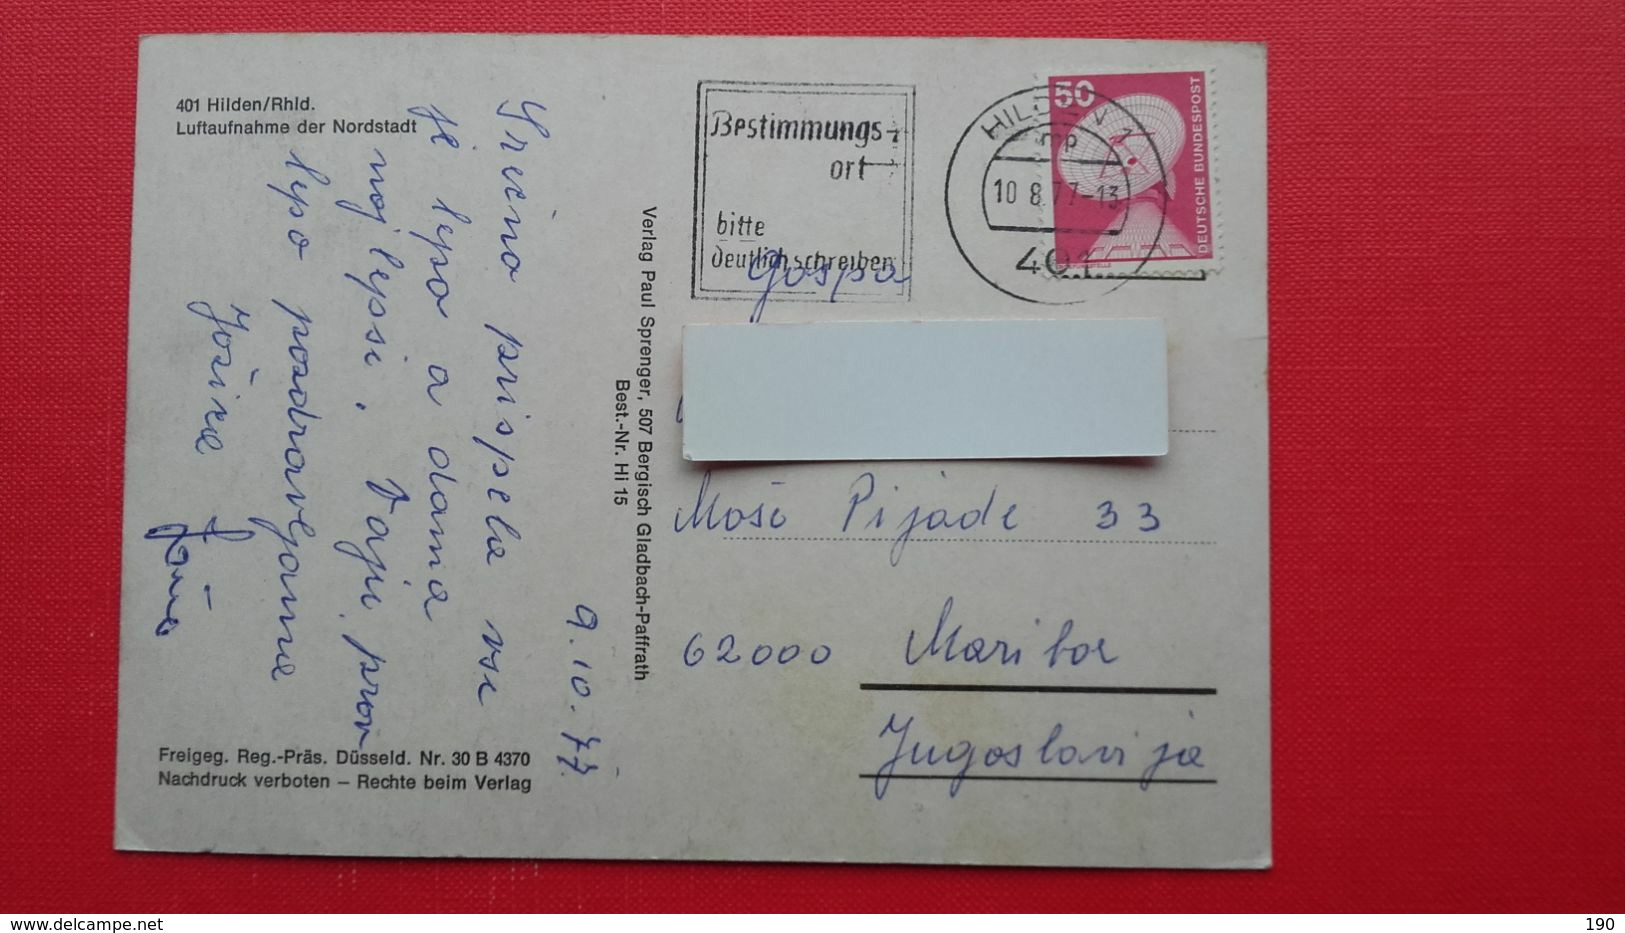 401 Hilden/Rhld.
Luftaufnahme der Nordstadt
Srečno prispela vse
je lepo a doma
najlepsi.
lepo pozdravljamo
Jožica
9.10.77.
Freigeg. Reg.-Präs. Düsseld. Nr. 30 B 4370
Nachdruck verboten – Rechte beim Verlag
Verlag Paul Sprenger, 507 Bergisch Gladbach-Paffrath
Best.-Nr. Hi 15
Bestimmungs-
ort
bitte
deutlich schreiben
10 8.77-13
401
50
DEUTSCHE BUNDESPOST
Gospa
Moše Pijade 33
62000 Maribor
Jugoslavija
www.delcampe.net
190